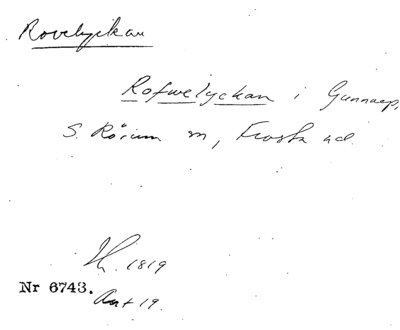 Rovelyckan
Rofwelyckan i Gunnarp,
S. Rörum sn, Frosta hd.
1819
Nr 6743.
Ant 19.